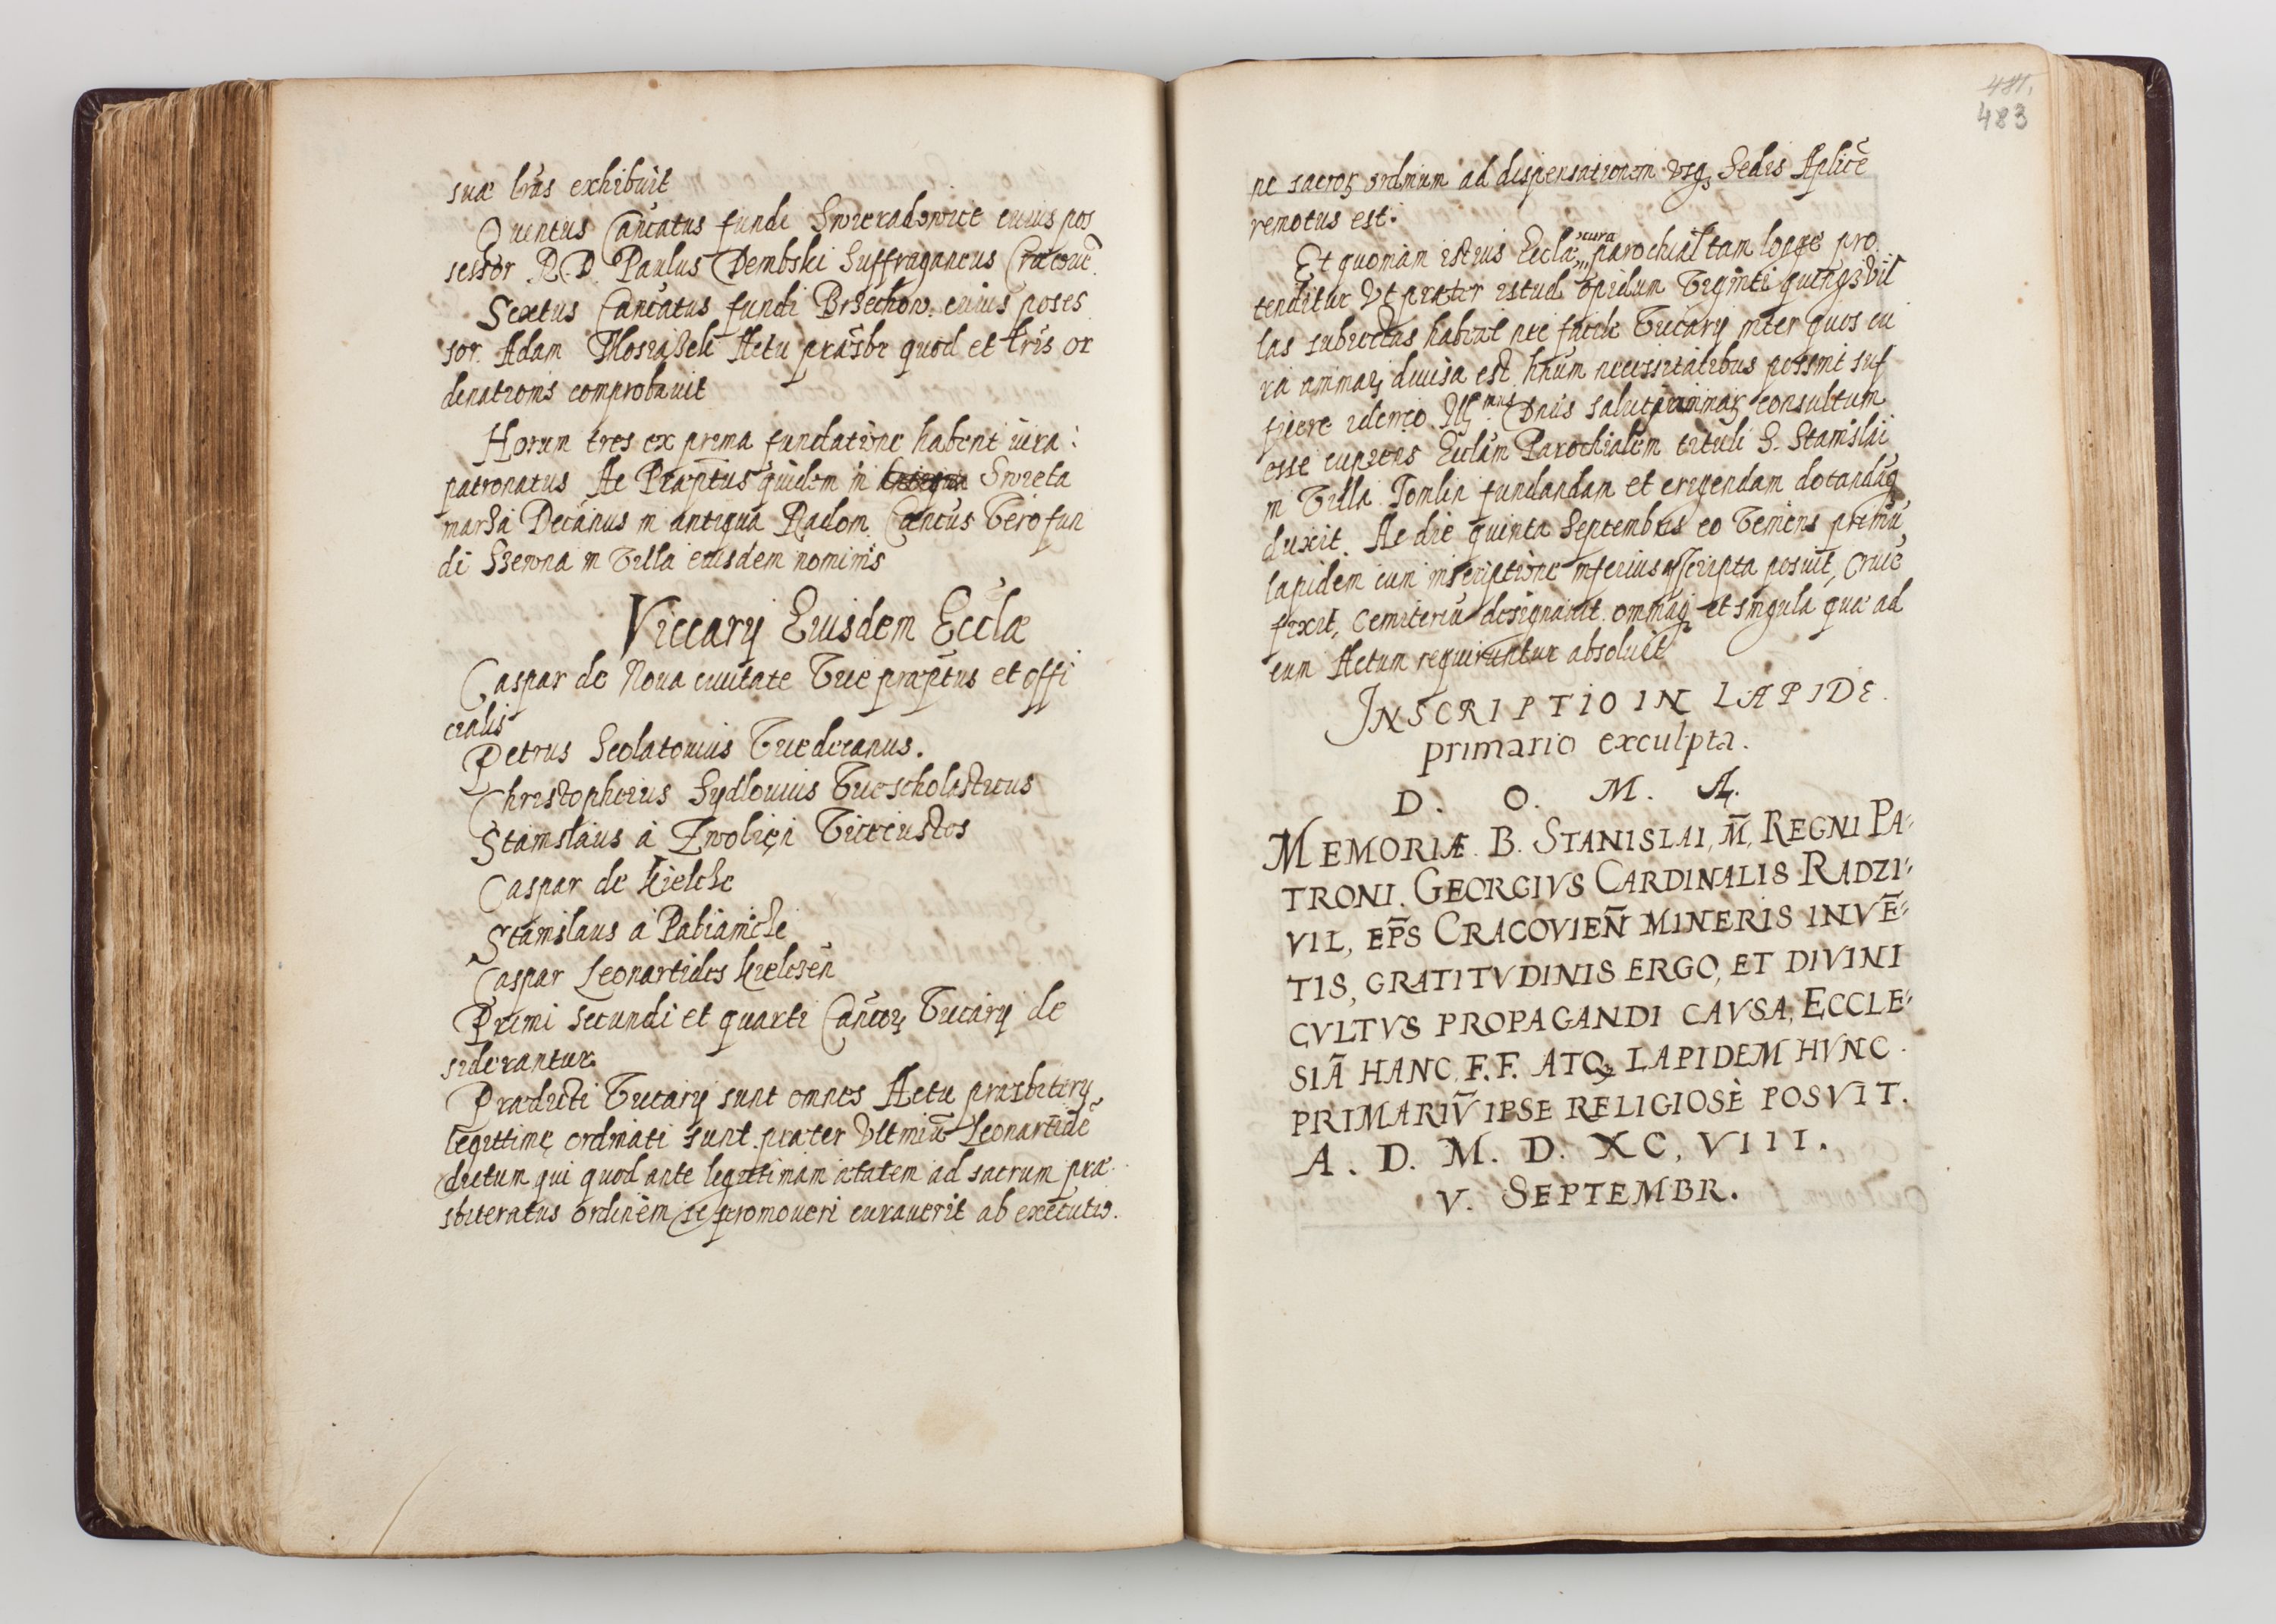 suæ lras exhibuit
Quintus Canc̃atus fundi Swieradowice cuius pos
sessor R. D. Paulus Dembski Suffraganeus Cracovien̄.
Sextus Canc̃atus fundi Brzechow. cuius poses
sor. Adam Actu præsbr quod et lr̃is or
dinationis comprobavit
Horum tres ex prima fundatione habent iura
patronatus Ac Præptus quidem in Swieta
marza Decanus in antiqua Radom. Canc̃us Vero fun
di Szewna in Villa eiusdem nominis
Viccarij Eiusdem Eccĺæ
Caspar de Noua ciuitate Vice præptus et offi
cialis
Petrus Scolatouius Vicedecanus.
Christophorus Sydlouius Vicescholasticus
Stanislaus à Zwolięn Vicecustos
Caspar de Kielcze
Stanislaus à Pabianicze
Caspar Leonartides Kielczen̄
Primi secundi et quarti Canc̃orꝝ Vicarij de
siderantur
Prædicti Vicarij sunt omnes Actu præsbiterij
legittimę ordinati sunt præter Vltimū Leonartidē
dictum qui quod ante legitimam ætatem ad sacrum præ
sbiteratus ordinem se promoueri curauerit ab executio.
481.
483
ne sacroꝝ ordinum ad dispensationem vsq́ Sedis Aplicē
remotus est.
cura
Et quoniam istius Eccĺæ parochial̃ tam longe pro
tenditur Vt præter istud opidum Viginti quinq́ Vil
las subiectas habeat nec facile Vicarij inter quos cu
ra animaꝝ diuisa est hōum necessitatibus possint suf
ficere idcirco Ill.mus Dnūs saluti animaꝝ consultum
esse cupiens Eccĺam Parochialem tituli S. Stanislai
in Villa Tomlin fundandam et erigendam dotandāq́
duxit. Ac die quinta Septembris eo Veniens primū
lapidem cum inscriptione inferius asscripta posuit, Crucē
fixit, Cemiteriū designauit omniaq́ et singula quæ ad
eum Actum requiruntur absoluit
INSCRIPTIO IN LAPIDE.
primario exculpta.
D. O. M. A.
MEMORIÆ. B. STANISLAI, M̄, REGNI PA-
TRONI. GEORGIVS CARDINALIS RADZI-
VIL, EP̄S CRACOVIEN̄ MINERIS INVĒ-
TIS, GRATITVDINIS ERGO, ET DIVINI
CVLTVS PROPAGANDI CAVSA, ECCLE-
SIĀ HANC. F. F. ATQ́ LAPIDEM HVNC.
PRIMARIV̄ IPSE RELIGIOSÈ POSVIT.
A. D. M. D. XC, VIII.
V. SEPTEMBR.